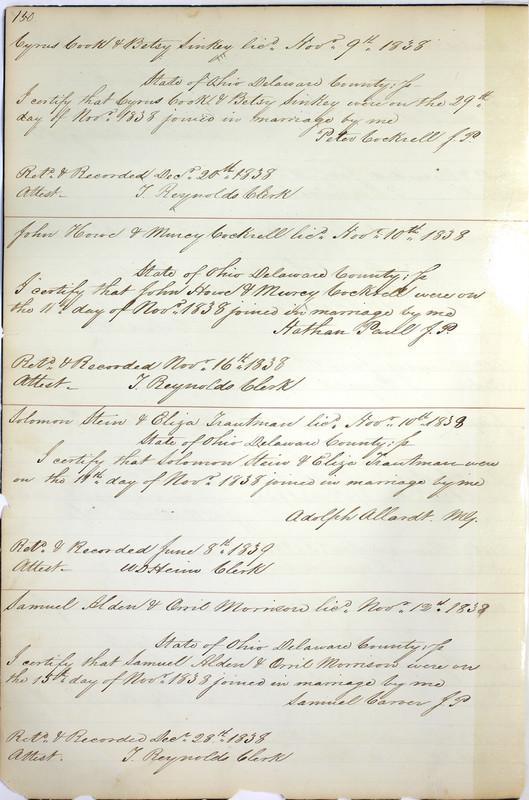 150
Cyrus Cook & Betsy Sinkey licd. Novr. 9th. 1838
State of Ohio Delaware County: Ss
I certify that Cyrus Cook & Betsy Sinkey were on the 29th.
day of Novr. 1838 joined in marriage by me
Peter Cockrell J.P.
Retd. & Recorded Decr. 20th. 1838
Attest- T. Reynolds Clerk
John Howe & Muncy Cockrell licd. Novr. 10th. 1838
State of Ohio Delaware County: Ss
I certify that John Howe & Muncy Cockrell were on
the 11th. day of Novr. 1838 joined in marriage by me
Nathan Paul J.P.
Retd. & Recorded Novr. 16th. 1838
Attest- T. Reynolds Clerk
Solomon Stein & Eliza Trautman licd. Novr. 10th. 1838
State of Ohio Delaware County: Ss
I certify that Solomon Stein & Eliza Trautman were
on the day of Novr. 1838 joined in marriage by me
Adolph Allardt. MG.
Retd. & Recorded June 8th. 1839
Attest- W D Heim Clerk
Samuel Alden & Orril Morrison licd. Novr. 12th. 1838
State of Ohio Delaware County: Ss
I certify that Samuel Alden & Orril Morrison were on
the 15th. day of Novr. 1838 joined in marriage by me
Samuel Carver J.P.
Retd. & Recorded Decr. 28th. 1838
Attest. T. Reynolds Clerk